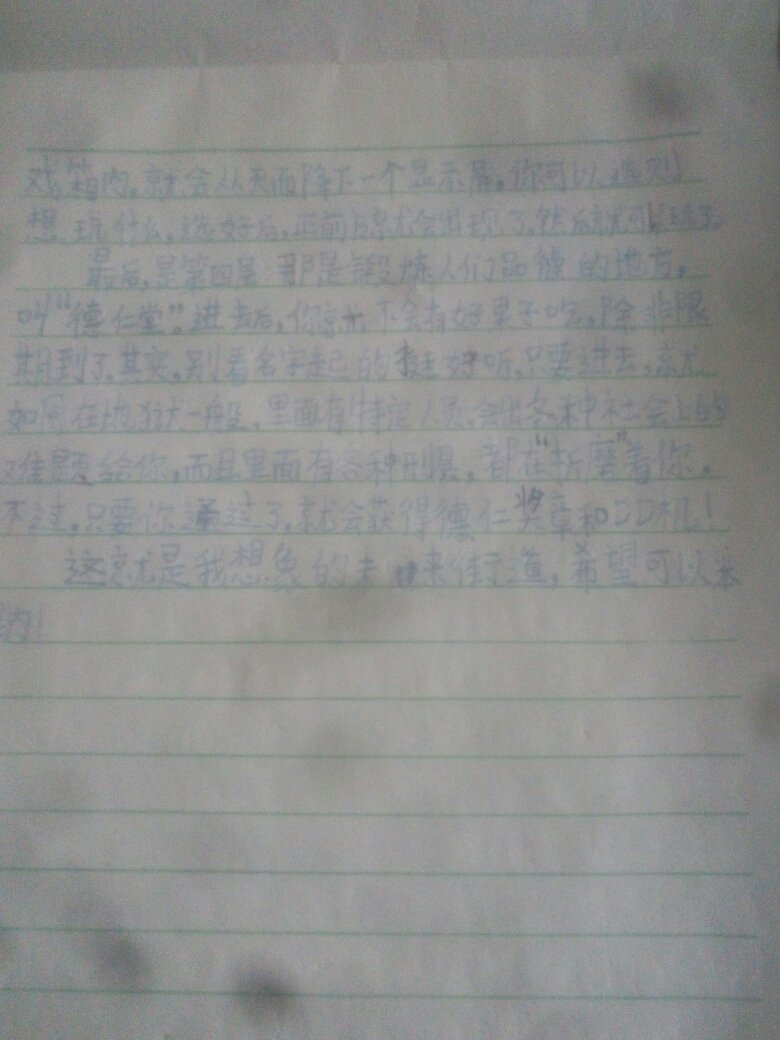 戏箱内,就会从天而降下一个显示屏,你可以选则
想玩什么,选好后,正前方就会出现了,然后就可以玩了。
最后,是第四层:那是锻炼人们品德的地方,
叫“德仁堂”。进去后,你就不会有好果子吃,除非限
期到了,其实,别看名字起的挺好听,只要进去,就
如同在地狱一般,里面有特定人员,会出各种社会上的
难题给你,而且里面有各种刑具,都在“折磨”着你。
不过,只要你通过了,就会获得德仁奖章和DD机!
这就是我想象的未来街道,希望可以采
纳!